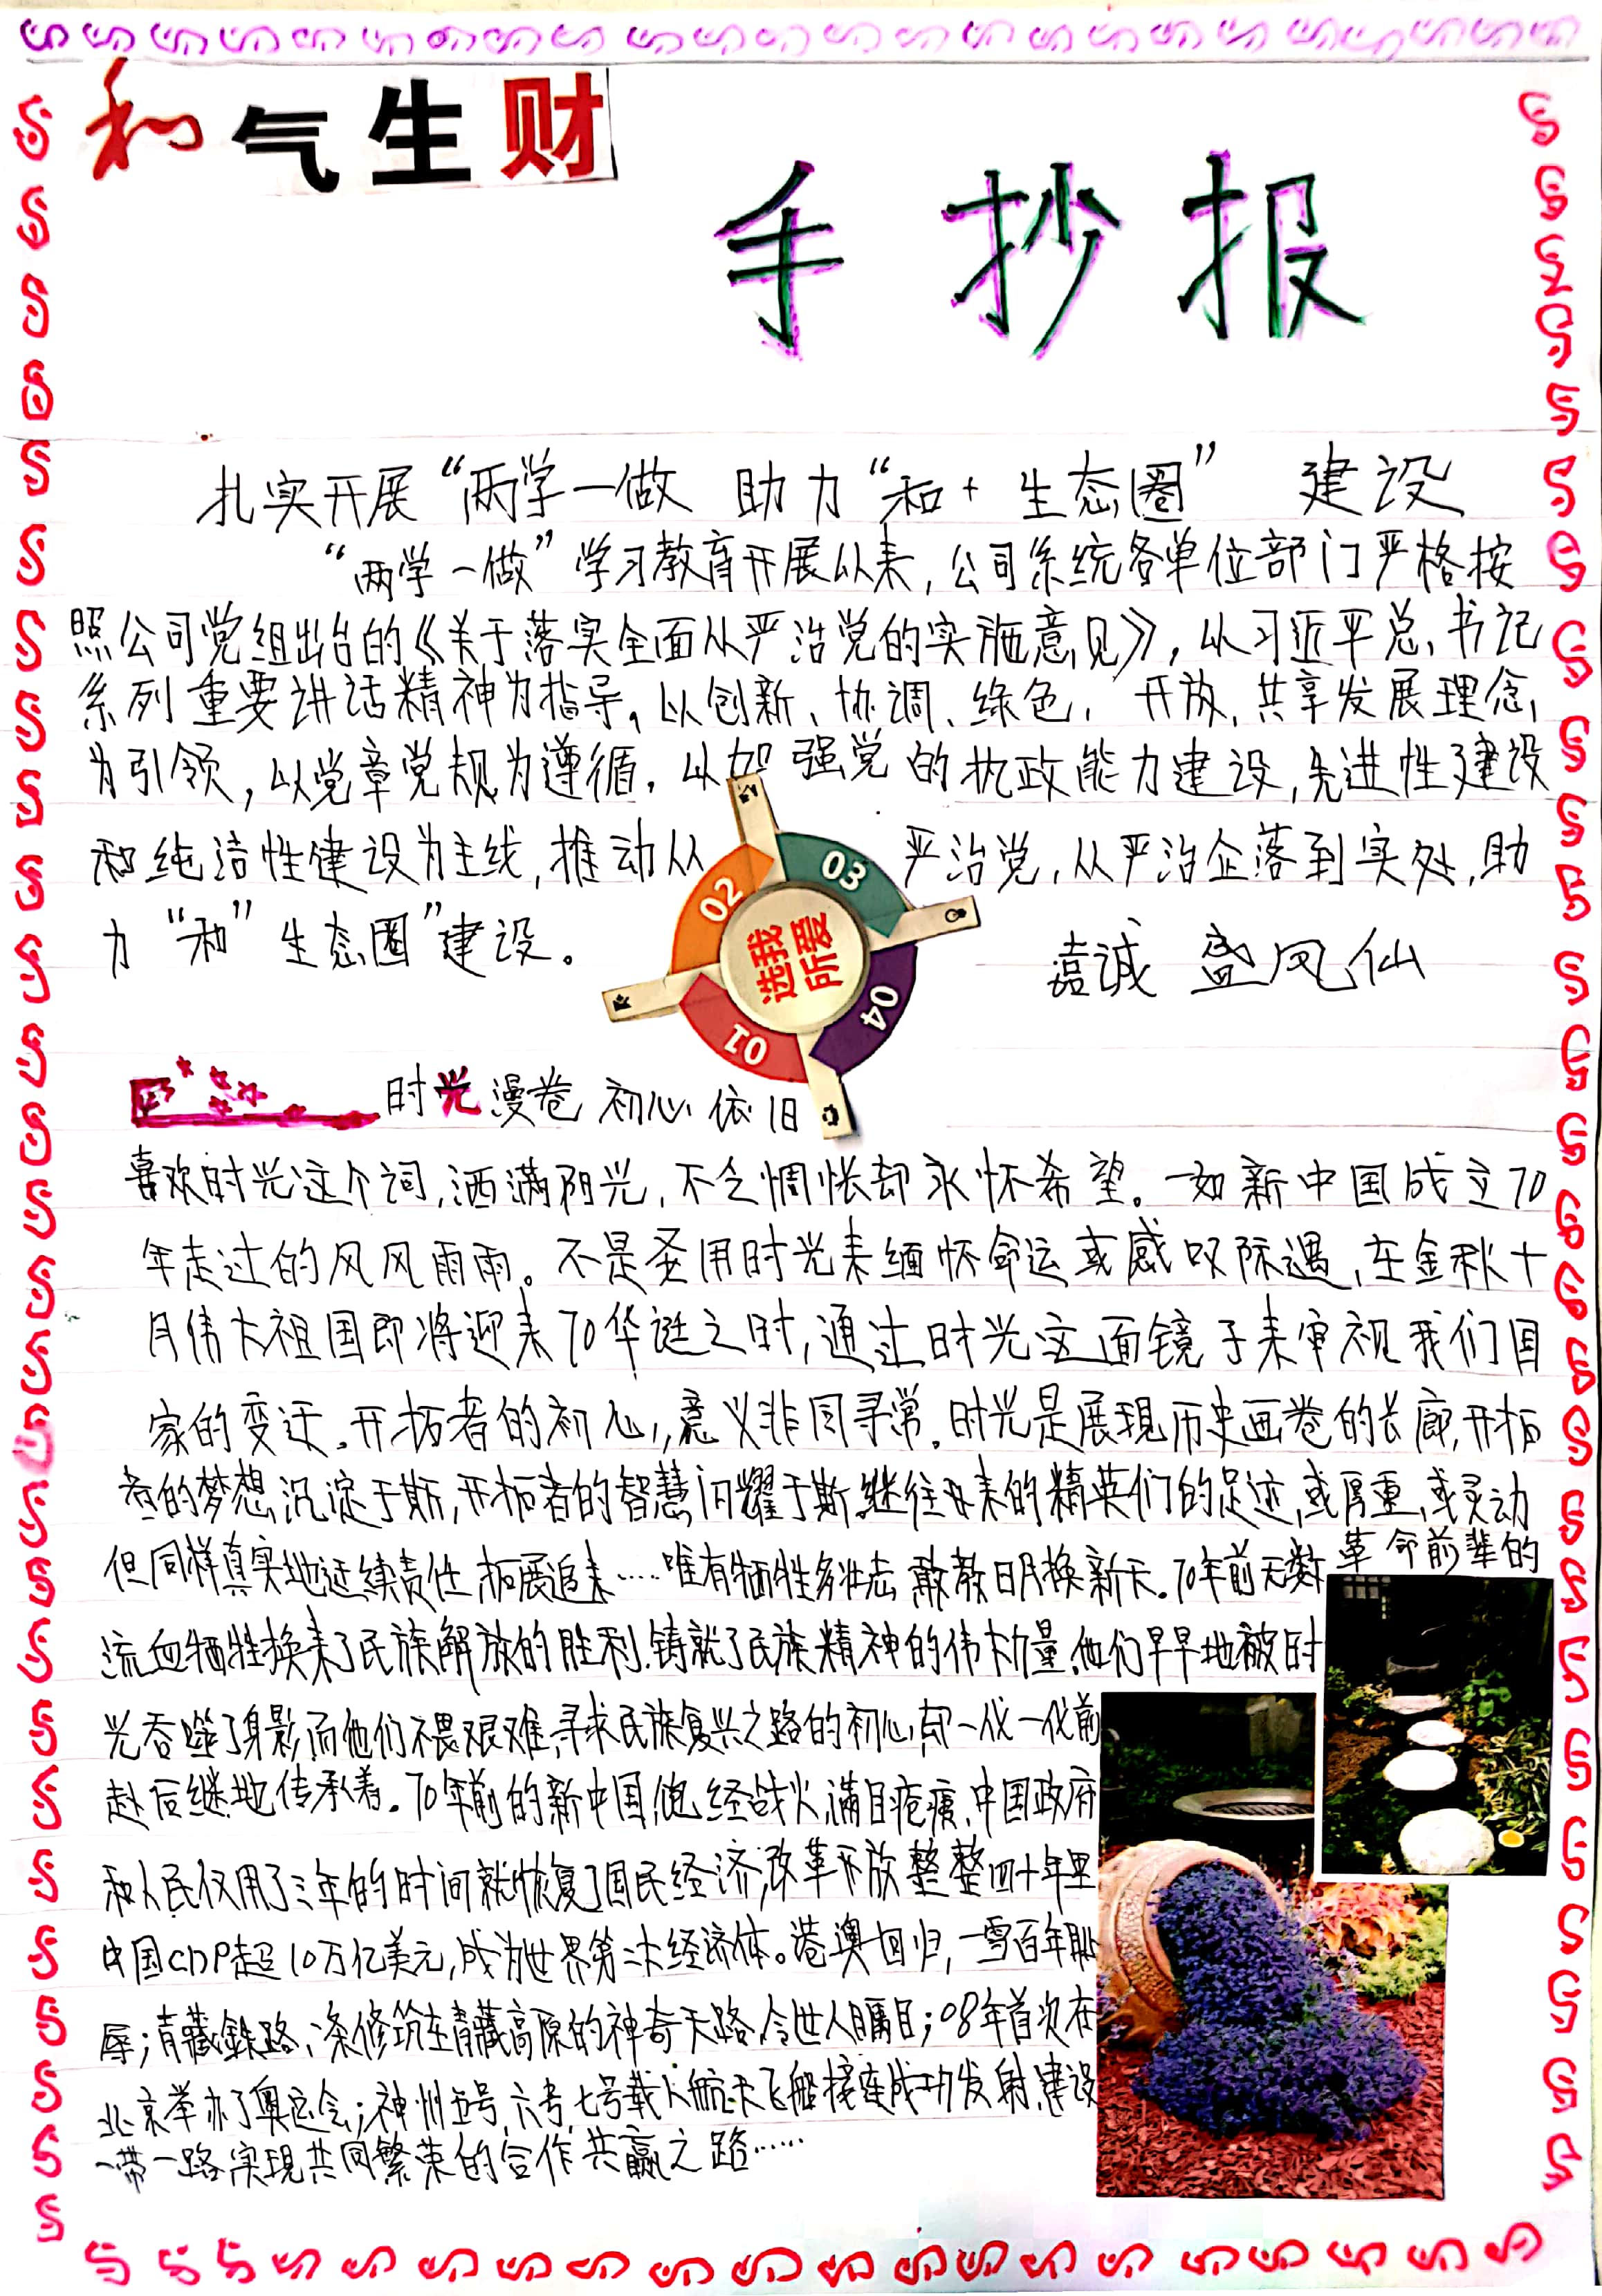 和气生财
手抄报
扎实开展“两学一做 助力“和+生态圈” 建设
“两学一做”学习教育开展以来,公司系统各单位部门严格按
照公司党组出台的《关于落实全面从严治党的实施意见》,以习近平总书记
系列重要讲话精神为指导,以创新、协调、绿色,开放,共享发展理念,
为引领,以党章党规为遵循,以加强党的执政能力建设,先进性建设
和纯洁性建设为主线,推动从 严治党,从严治企落到实处,助
力“和”生态圈”建设。
嘉诚 盛凤仙
02
03
选我所爱
01
04
时光漫卷 初心依旧
喜欢时光这个词,洒满阳光,不会惆怅却永怀希望。一如新中国成立70
年走过的风风雨雨。不是圣用时光来缅怀命运或感叹际遇,在金秋十
月伟大祖国即将迎来70华诞之时,通过时光这面镜子来审视我们国
家的变迁,开拓者的初心,意义非同寻常。时光是展现历史画卷的长廊,开拓
者的梦想沉淀于斯,开拓者的智慧闪耀于斯,继往开来的精英们的足迹,或厚重,或灵动
但同样真实地延续责任,拓展追求……唯有牺牲多壮志,敢教日月换新天。70年前无数革命前辈的
流血牺牲换来了民族解放的胜利,铸就了民族精神的伟大力量,他们早早地被时
光吞噬了身影,而他们不畏艰难,寻求民族复兴之路的初心,却一代一代前
赴后继地传承着。70年前的新中国,饱经战火,满目疮痍,中国政府
和人民仅用了三年的时间就恢复了国民经济,改革开放整整四十年里
中国GDP超10万亿美元,成为世界第二大经济体。港澳回归,一雪百年耻
辱;青藏铁路,一条修筑在青藏高原的神奇天路,令世人瞩目;08年首次在
北京举办了奥运会;神州五号,六号,七号载人航天飞船接连成功发射,建设
一带一路,实现共同繁荣的合作共赢之路……